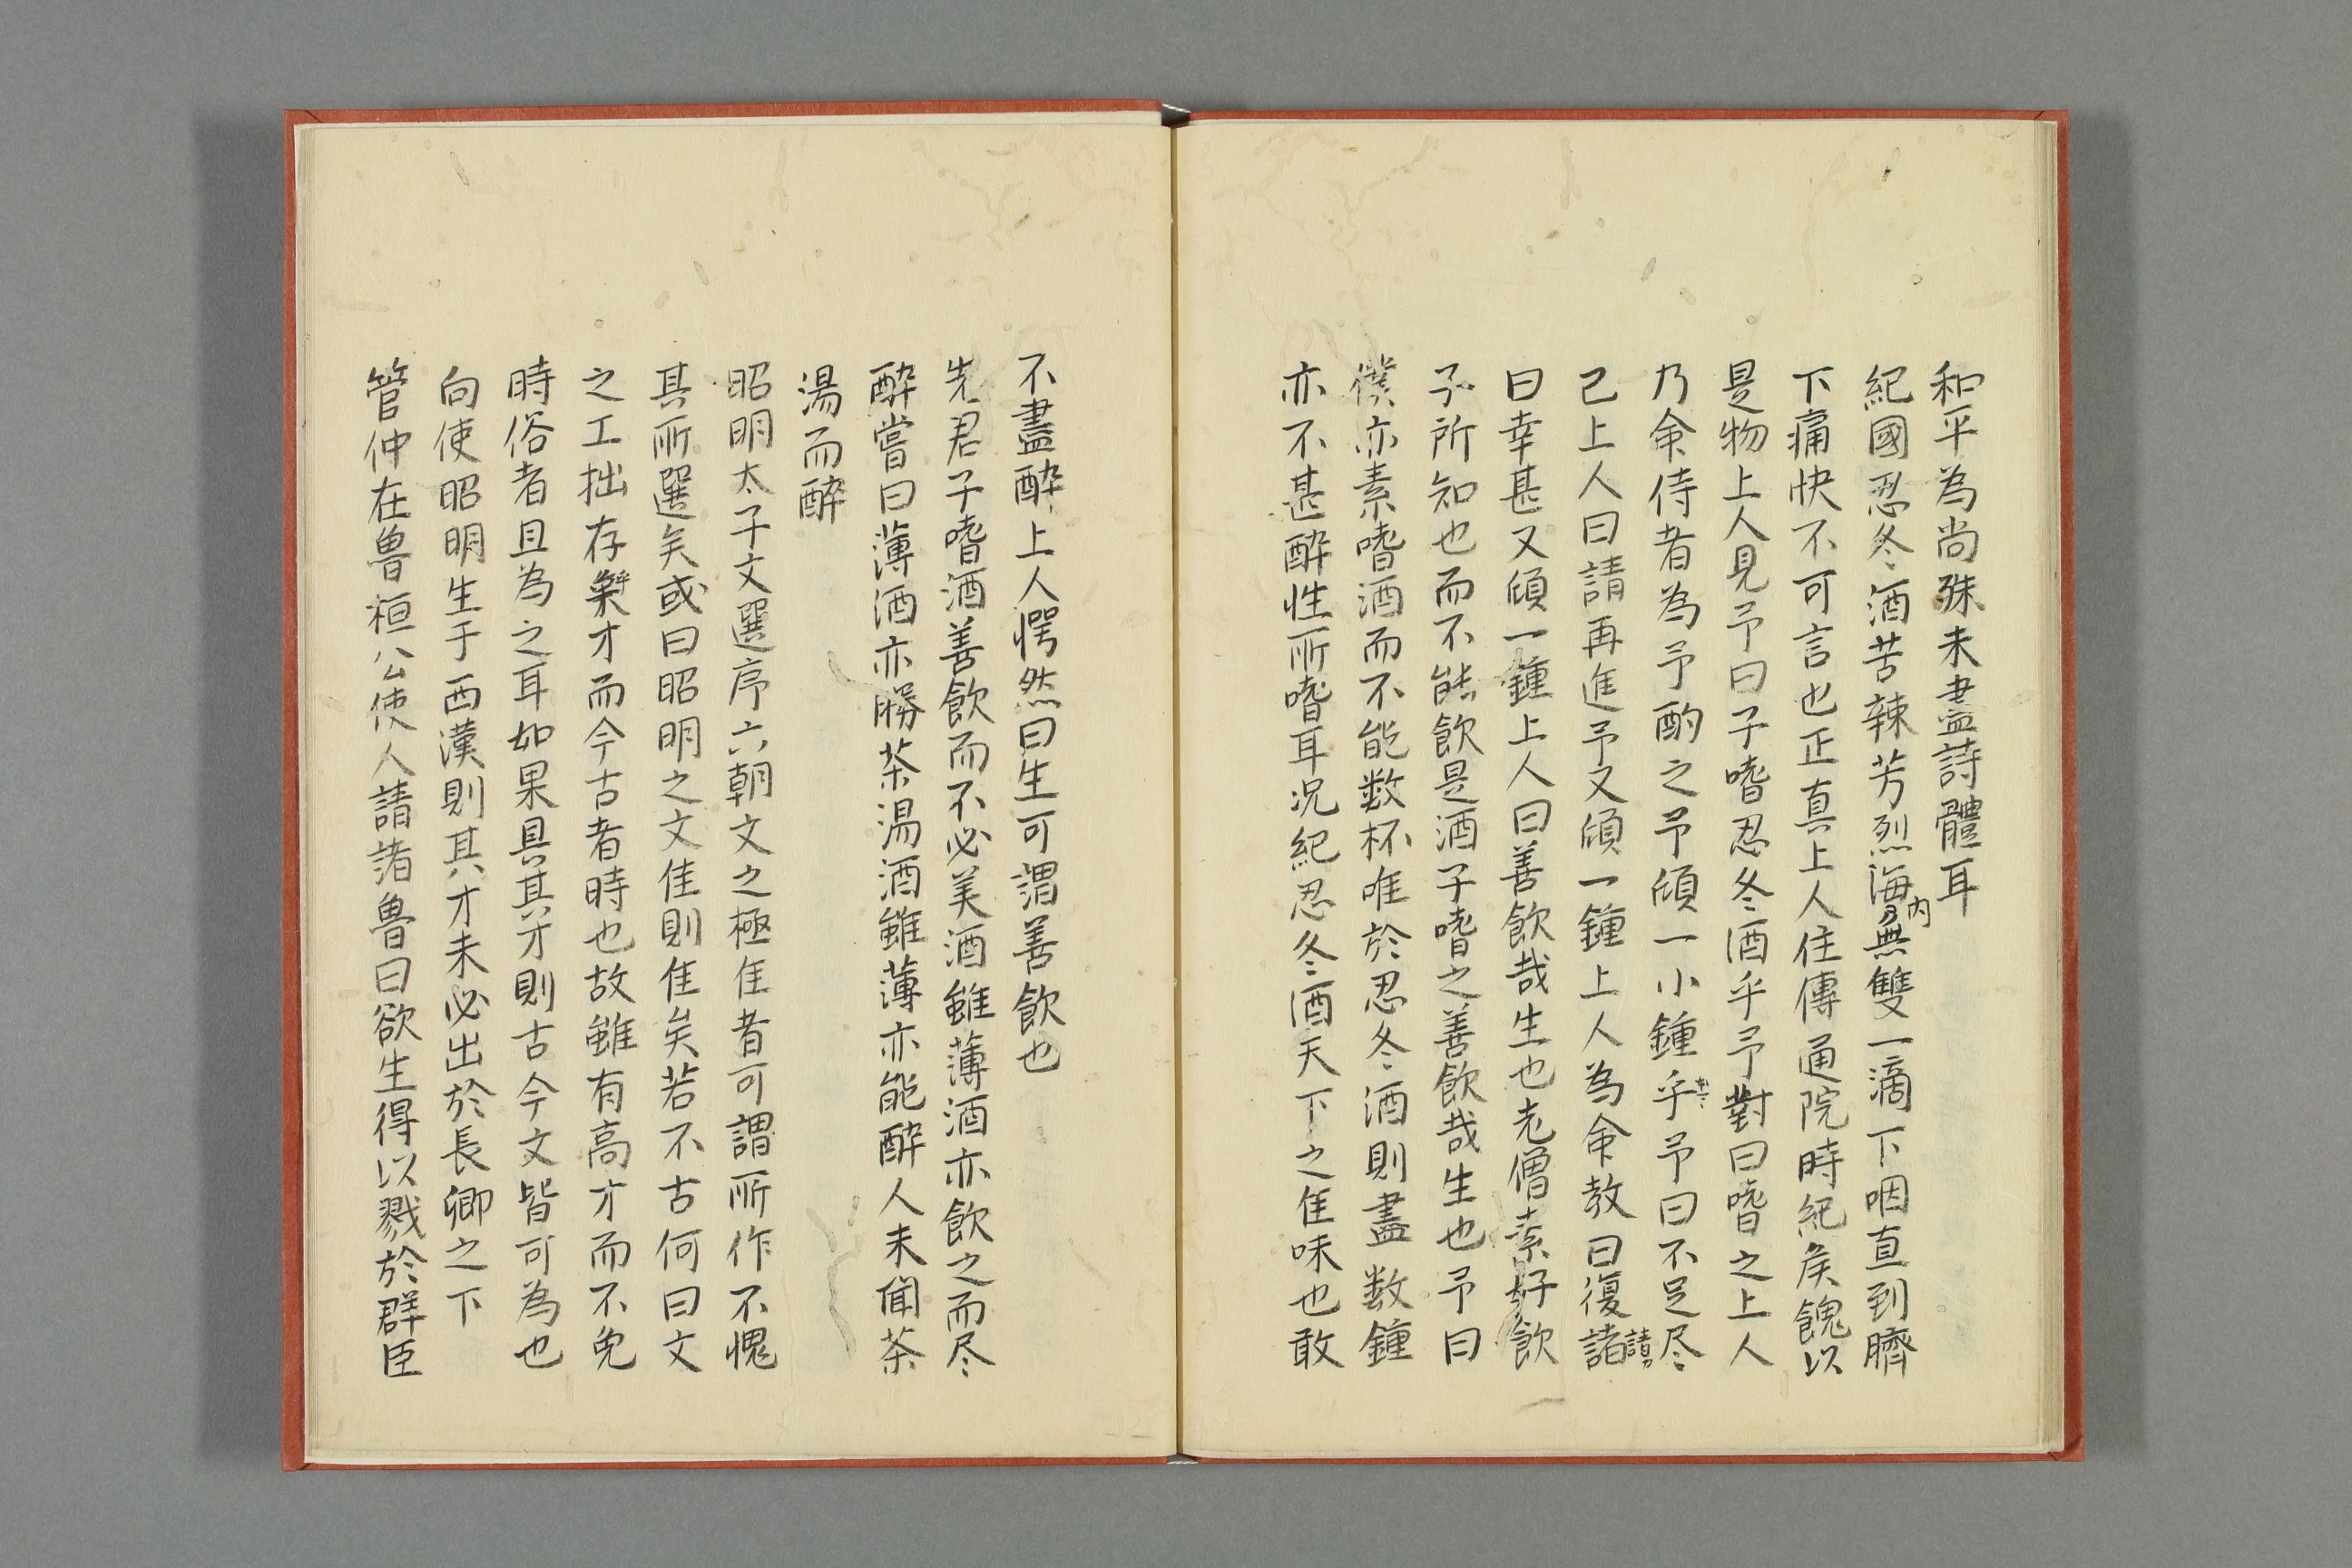 和平為尚殊未盡詩體耳
紀國忍冬酒苦辣芳烈海内無雙一滴下咽直到臍
下痛快不可言也正真上人住傳通院時紀矦餽以
是物上人見予曰子嗜忍冬酒乎予對曰嗜之上人
乃命侍者為予酌之予傾一小鍾乎予曰不足尽
已上人曰請再進予又傾一鍾上人為命教曰復諸請
曰幸甚又傾一鍾上人曰善飲哉生也老僧素好飲
子所知也而不能飲是酒子嗜之善飲哉生也予曰
僕亦素嗜酒而不能数杯唯於忍冬酒則盡数鍾
亦不甚酔性所嗜耳况紀忍冬酒天下之佳味也敢
不盡酔上人愕然曰生可謂善飲也
先君子嗜酒善飲而不必美酒雖薄酒亦飲之而尽
酔嘗曰薄酒亦勝茶湯酒雖薄亦能酔人未聞茶
湯而酔
昭明太子文選序六朝文之極佳者可謂所作不愧
其所選矣或曰昭明之文佳則佳矣若不古何曰文
之工拙存乎才而今古者時也故雖有高才而不免
時俗者且為之耳如果具其才則古今文皆可為也
向使昭明生于西漢則其才未必出於長卿之下
管仲在魯桓公使人請諸魯曰欲生得以戮於群臣